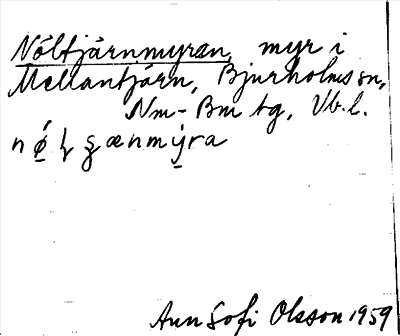 Nöltjärnmyran, myr i
Mellantjärn, Bjurholms sn,
Nm-Bm tg, Vb. l.
Ann Sofi Olsson 1959